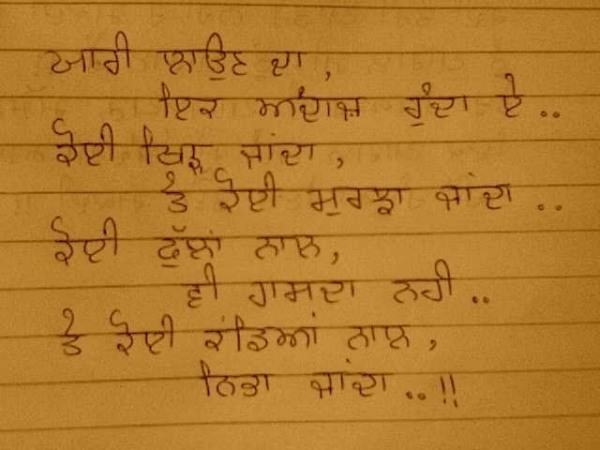 ਯਾਰੀ ਲਾਉਣ ਦਾ,
ਇਕ ਅੰਦਾਜ਼ ਹੁੰਦਾ ਏ..
ਕੋਈ ਖਿੜ੍ਹ ਜਾਂਦਾ,
ਤੇ ਕੋਈ ਮੁਰਝਾ ਜਾਂਦਾ ..
ਕੋਈ ਫੁੱਲਾਂ ਨਾਲ,
ਵੀ ਹਸਦਾ ਨਹੀ..
ਤੇ ਕੋਈ ਕੰਡਿਆਂ ਨਾਲ,
ਨਿਭਾ ਜਾਂਦਾ..!!